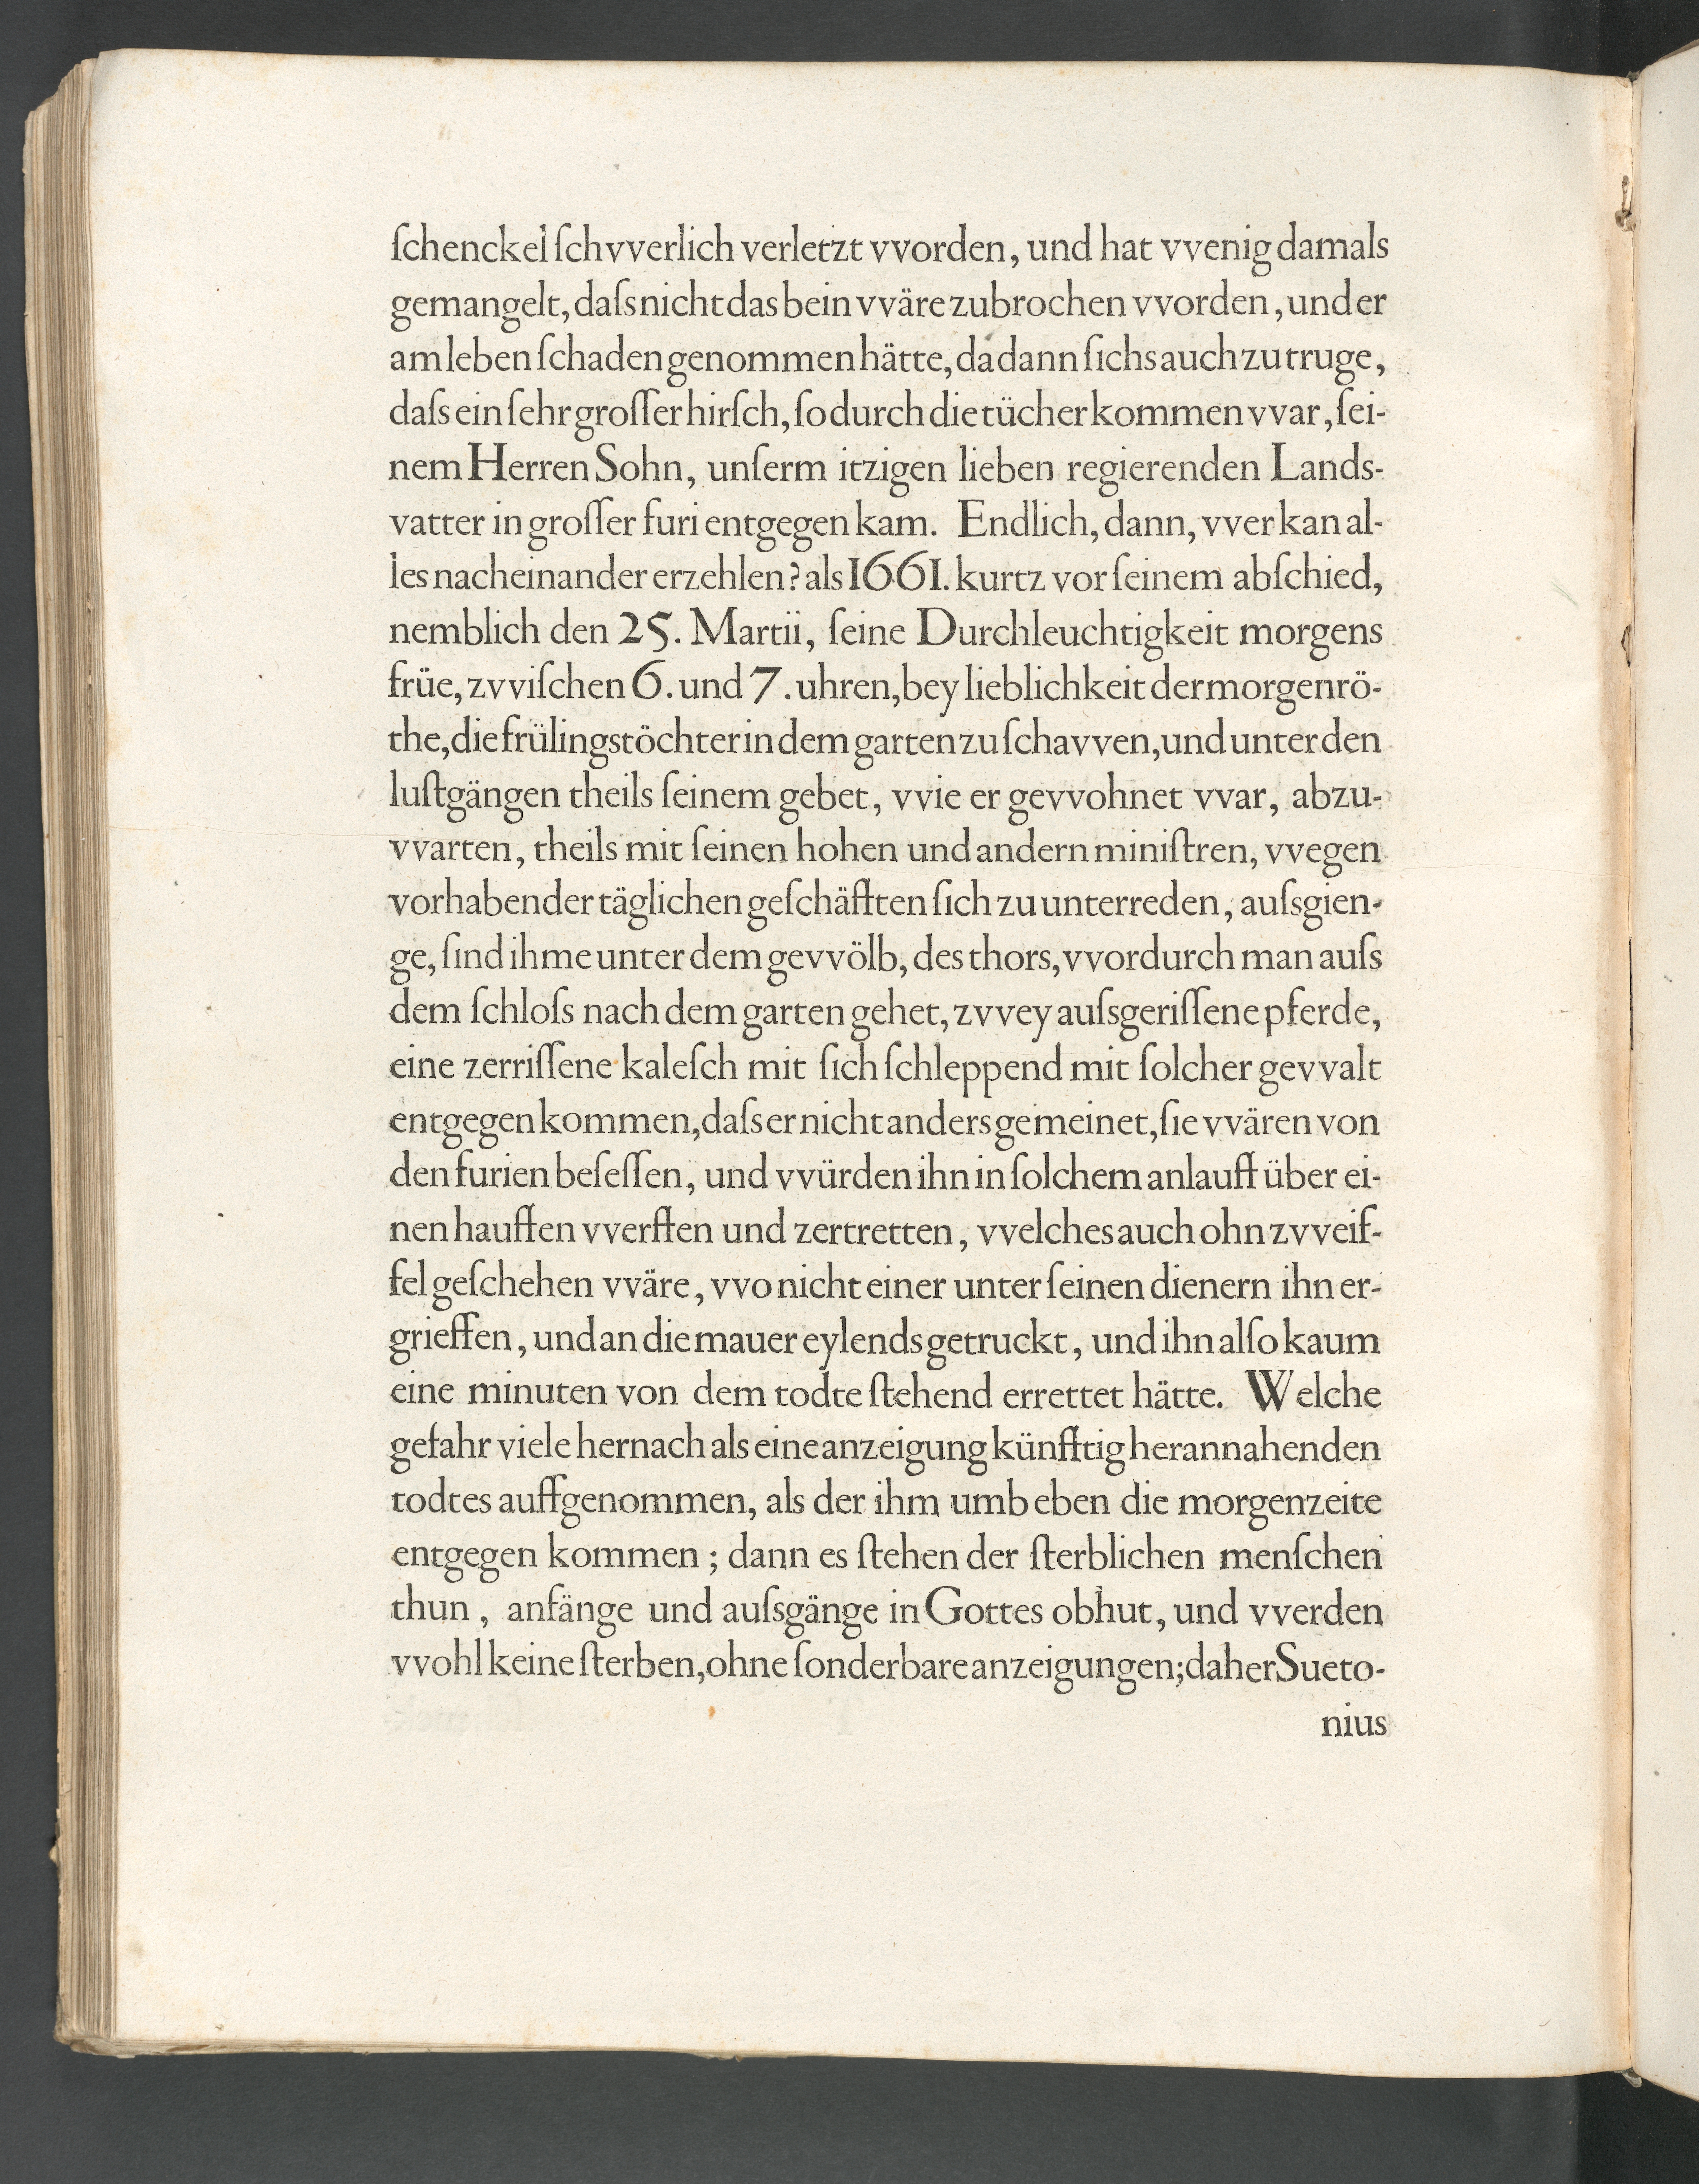 ſchenckel ſchvverlich verletzt vvorden, und hat vvenig damals
gemangelt, daſs nicht das bein vväre zubrochen vvorden, und er
am leben ſchaden genommen hätte, da dann ſichs auch zu truge,
daſs ein ſehr groſſer hirſch, ſo durch die tücher kommen vvar, ſei-
nem Herren Sohn, unſerm itzigen lieben regierenden Lands-
vatter in groſſer furi entgegen kam. Endlich, dann, vver kan al-
les nacheinander erzehlen? als 1661. kurtz vor ſeinem abſchied,
nemblich den 25. Martii, ſeine Durchleuchtigkeit morgens
früe, zvviſchen 6. und 7. uhren, bey lieblichkeit der morgenrö-
the, die frülingstöchter in dem garten zu ſchavven, und unter den
luſtgängen theils ſeinem gebet, vvie er gevvohnet vvar, abzu-
vvarten, theils mit ſeinen hohen und andern miniſtren, vvegen
vorhabender täglichen geſchäfften ſich zu unterreden, auſsgien-
ge, ſind ihme unter dem gevvölb, des thors, vvordurch man auſs
dem ſchloſs nach dem garten gehet, zvvey auſsgeriſſene pferde,
eine zerriſſene kaleſch mit ſich ſchleppend mit ſolcher gevvalt
entgegen kommen, daſs er nicht anders gemeinet, ſie vvären von
den furien beſeſſen, und vvürden ihn in ſolchem anlauff über ei-
nen hauffen vverffen und zertretten, vvelches auch ohn zvveif-
fel geſchehen vväre, vvo nicht einer unter ſeinen dienern ihn er-
grieffen, und an die mauer eylends getruckt, und ihn alſo kaum
eine minuten von dem todte ſtehend errettet hätte. Welche
gefahr viele hernach als eine anzeigung künfftig herannahenden
todtes auffgenommen, als der ihm umb eben die morgenzeite
entgegen kommen; dann es ſtehen der ſterblichen menſchen
thun, anfänge und auſsgänge in Gottes obhut, und vverden
vvohl keine ſterben, ohne ſonderbare anzeigungen; daher Sueto-
nius